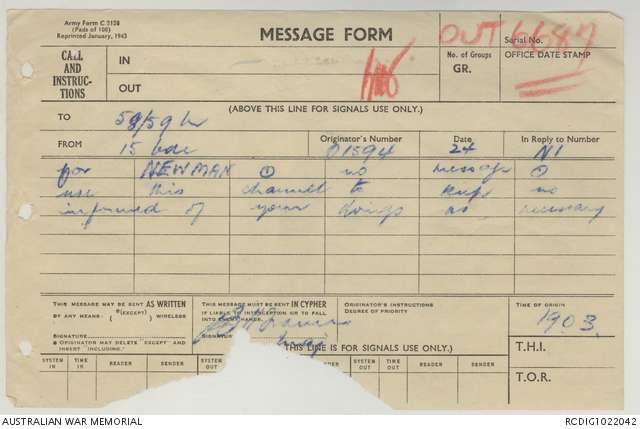 Army Form C 2128
(Pads of 100)
Reprinted January, 1943
MESSAGE FORM
OUT 6687
Serial No.
CALL AND INSTRUCTIONS
IN
OUT
No. of Groups
GR.
OFFICE DATE STAMP
(ABOVE THIS LINE FOR SIGNALS USE ONLY.)
TO 58/59 Bn
FROM 15 bde
Originator's Number 01594
Date 24
In Reply to Number N1
for NEWMAN no message
use this channel to keep no
informed of your doings as necessary
THIS MESSAGE MAY BE SENT AS WRITTEN
BY ANY MEANS (EXCEPT) WIRELESS
SIGNATURE
ORIGINATOR MAY DELETE EXCEPT AND INSERT "INCLUDING."
THIS MESSAGE MUST BE SENT IN CYPHER
IF LIABLE TO INTERCEPTION OR TO FALL
SIGNATURE
ORIGINATOR'S INSTRUCTIONS
DEGREE OF PRIORITY
TIME OF ORIGIN
1903.
THIS LINE IS FOR SIGNALS USE ONLY.)
T.H.I.
T.O.R.
SYSTEM IN TIME IN READER SENDER SYSTEM
READER SENDER SYSTEM OUT TIME OUT READER SENDER
AUSTRALIAN WAR MEMORIAL
RCDIG1022042